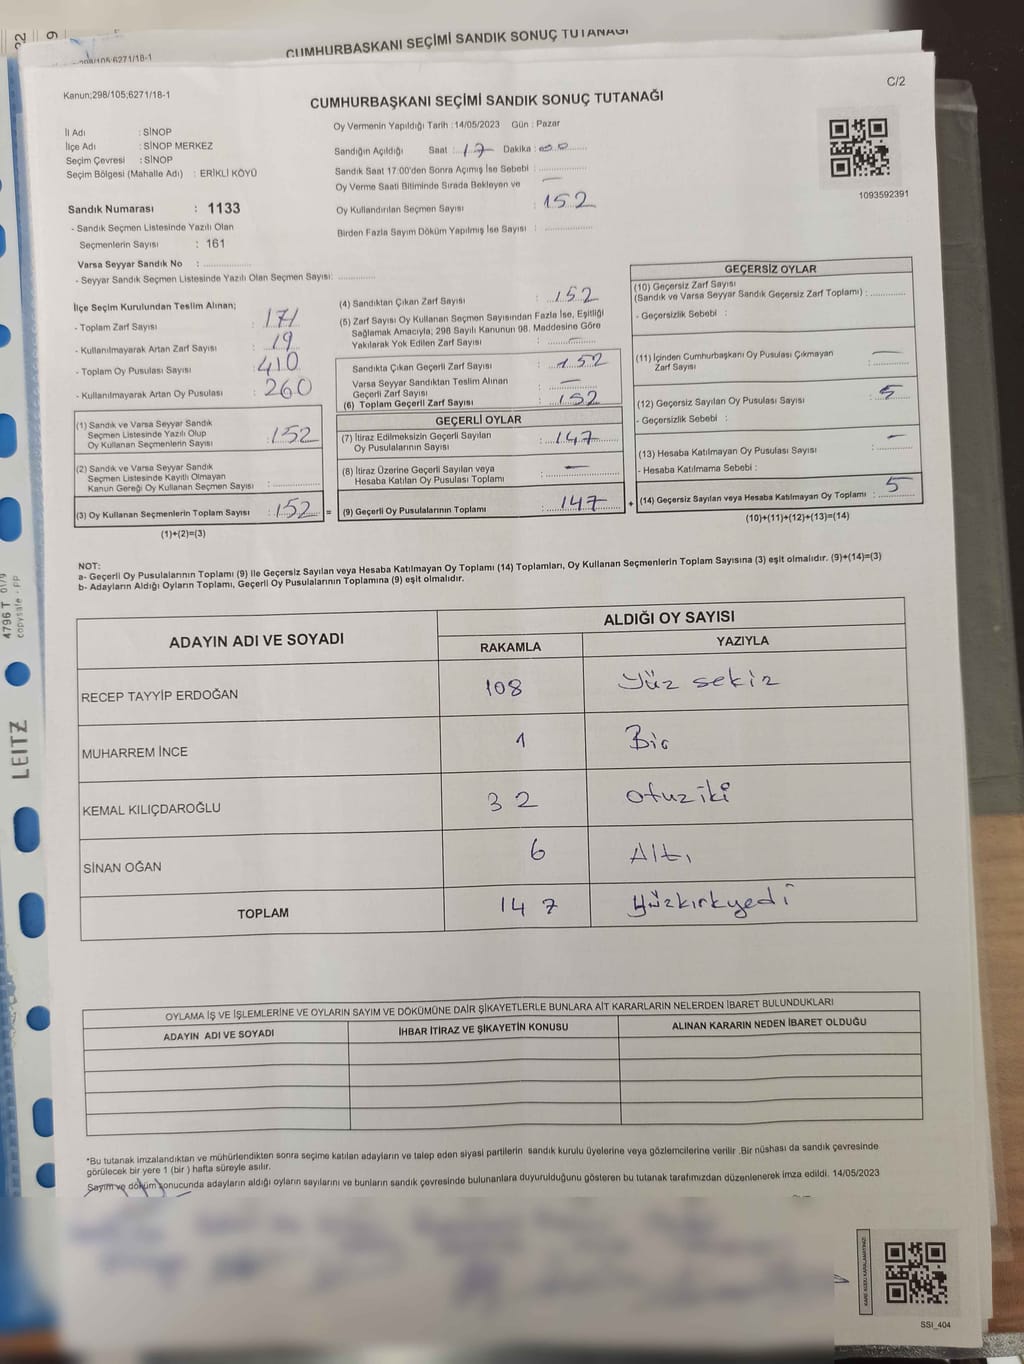 22
9
CUMHURBAŞKANI SEÇİMİ SANDIK SONUÇ TUTANAĞI
C/2
Kanun;298/105;6271/18-1
CUMHURBAŞKANI SEÇİMİ SANDIK SONUÇ TUTANAĞI
İl Adı : SİNOP
İlçe Adı : SİNOP MERKEZ
Seçim Çevresi : SİNOP
Seçim Bölgesi (Mahalle Adı) : ERİKLİ KÖYÜ
Oy Vermenin Yapıldığı Tarih : 14/05/2023 Gün : Pazar
Sandığın Açıldığı Saat : 17 Dakika : 00
Sandık Saat 17:00'den Sonra Açımış İse Sebebi :
Oy Verme Saati Bitiminde Sırada Bekleyen ve
Oy Kullandırılan Seçmen Sayısı : 152
Birden Fazla Sayım Döküm Yapılmış İse Sayısı :
1093592391
Sandık Numarası : 1133
- Sandık Seçmen Listesinde Yazılı Olan
Seçmenlerin Sayısı : 161
Varsa Seyyar Sandık No :
- Seyyar Sandık Seçmen Listesinde Yazılı Olan Seçmen Sayısı:
İlçe Seçim Kurulundan Teslim Alınan;
- Toplam Zarf Sayısı : 171
- Kullanılmayarak Artan Zarf Sayısı : 19
- Toplam Oy Pusulası Sayısı : 410
- Kullanılmayarak Artan Oy Pusulası : 260
(1) Sandık ve Varsa Seyyar Sandık
Seçmen Listesinde Yazılı Olup
Oy Kullanan Seçmenlerin Sayısı : 152
(2) Sandık ve Varsa Seyyar Sandık
Seçmen Listesinde Kayıtlı Olmayan
Kanun Gereği Oy Kullanan Seçmen Sayısı :
(3) Oy Kullanan Seçmenlerin Toplam Sayısı : 152 =
(1)+(2)=(3)
(4) Sandıktan Çıkan Zarf Sayısı : 152
(5) Zarf Sayısı Oy Kullanan Seçmen Sayısından Fazla İse, Eşitliği
Sağlamak Amacıyla; 298 Sayılı Kanunun 98. Maddesine Göre
Yakılarak Yok Edilen Zarf Sayısı : —
Sandıkta Çıkan Geçerli Zarf Sayısı : 152
Varsa Seyyar Sandıktan Teslim Alınan
Geçerli Zarf Sayısı : —
(6) Toplam Geçerli Zarf Sayısı : 152
GEÇERLİ OYLAR
(7) İtiraz Edilmeksizin Geçerli Sayılan
Oy Pusulasının Sayısı : 147
(8) İtiraz Üzerine Geçerli Sayılan veya
Hesaba Katılan Oy Pusulası Toplamı : —
(9) Geçerli Oy Pusulalarının Toplamı : 147 +
GEÇERSİZ OYLAR
(10) Geçersiz Zarf Sayısı
(Sandık ve Varsa Seyyar Sandık Geçersiz Zarf Toplamı) :
- Geçersizlik Sebebi :
(11) İçinden Cumhurbaşkanı Oy Pusulası Çıkmayan
Zarf Sayısı : —
(12) Geçersiz Sayılan Oy Pusulası Sayısı : 5
- Geçersizlik Sebebi :
(13) Hesaba Katılmayan Oy Pusulası Sayısı : —
- Hesaba Katılmama Sebebi :
(14) Geçersiz Sayılan veya Hesaba Katılmayan Oy Toplamı : 5
(10)+(11)+(12)+(13)=(14)
NOT:
a- Geçerli Oy Pusulalarının Toplamı (9) ile Geçersiz Sayılan veya Hesaba Katılmayan Oy Toplamı (14) Toplamları, Oy Kullanan Seçmenlerin Toplam Sayısına (3) eşit olmalıdır. (9)+(14)=(3)
b- Adayların Aldığı Oyların Toplamı, Geçerli Oy Pusulalarının Toplamına (9) eşit olmalıdır.
ADAYIN ADI VE SOYADI
ALDIĞI OY SAYISI
RAKAMLA YAZIYLA
RECEP TAYYİP ERDOĞAN 108 Yüz sekiz
MUHARREM İNCE 1 Bir
KEMAL KILIÇDAROĞLU 32 otuziki
SİNAN OĞAN 6 Altı
TOPLAM 147 yüzkırkyedi
OYLAMA İŞ ve İŞLEMLERİNE VE OYLARIN SAYIM VE DÖKÜMÜNE DAİR ŞİKAYETLERLE BUNLARA AİT KARARLARIN NELERDEN İBARET BULUNDUKLARI
ADAYIN ADI VE SOYADI İHBAR İTİRAZ VE ŞİKAYETİN KONUSU ALINAN KARARIN NEDEN İBARET OLDUĞU
*Bu tutanak imzalandıktan ve mühürlendikten sonra seçime katılan adayların ve talep eden siyasi partilerin sandık kurulu üyelerine veya gözlemcilerine verilir .Bir nüshası da sandık çevresinde
görülecek bir yere 1 (bir ) hafta süreyle asılır.
Sayım ve döküm sonucunda adayların aldığı oyların sayılarını ve bunların sandık çevresinde bulunanlara duyurulduğunu gösteren bu tutanak tarafımızdan düzenlenerek imza edildi. 14/05/2023
KARE KODU KARALAMAYINIZ!
SSI_404
LEITZ
4796 T
copysafe - PP